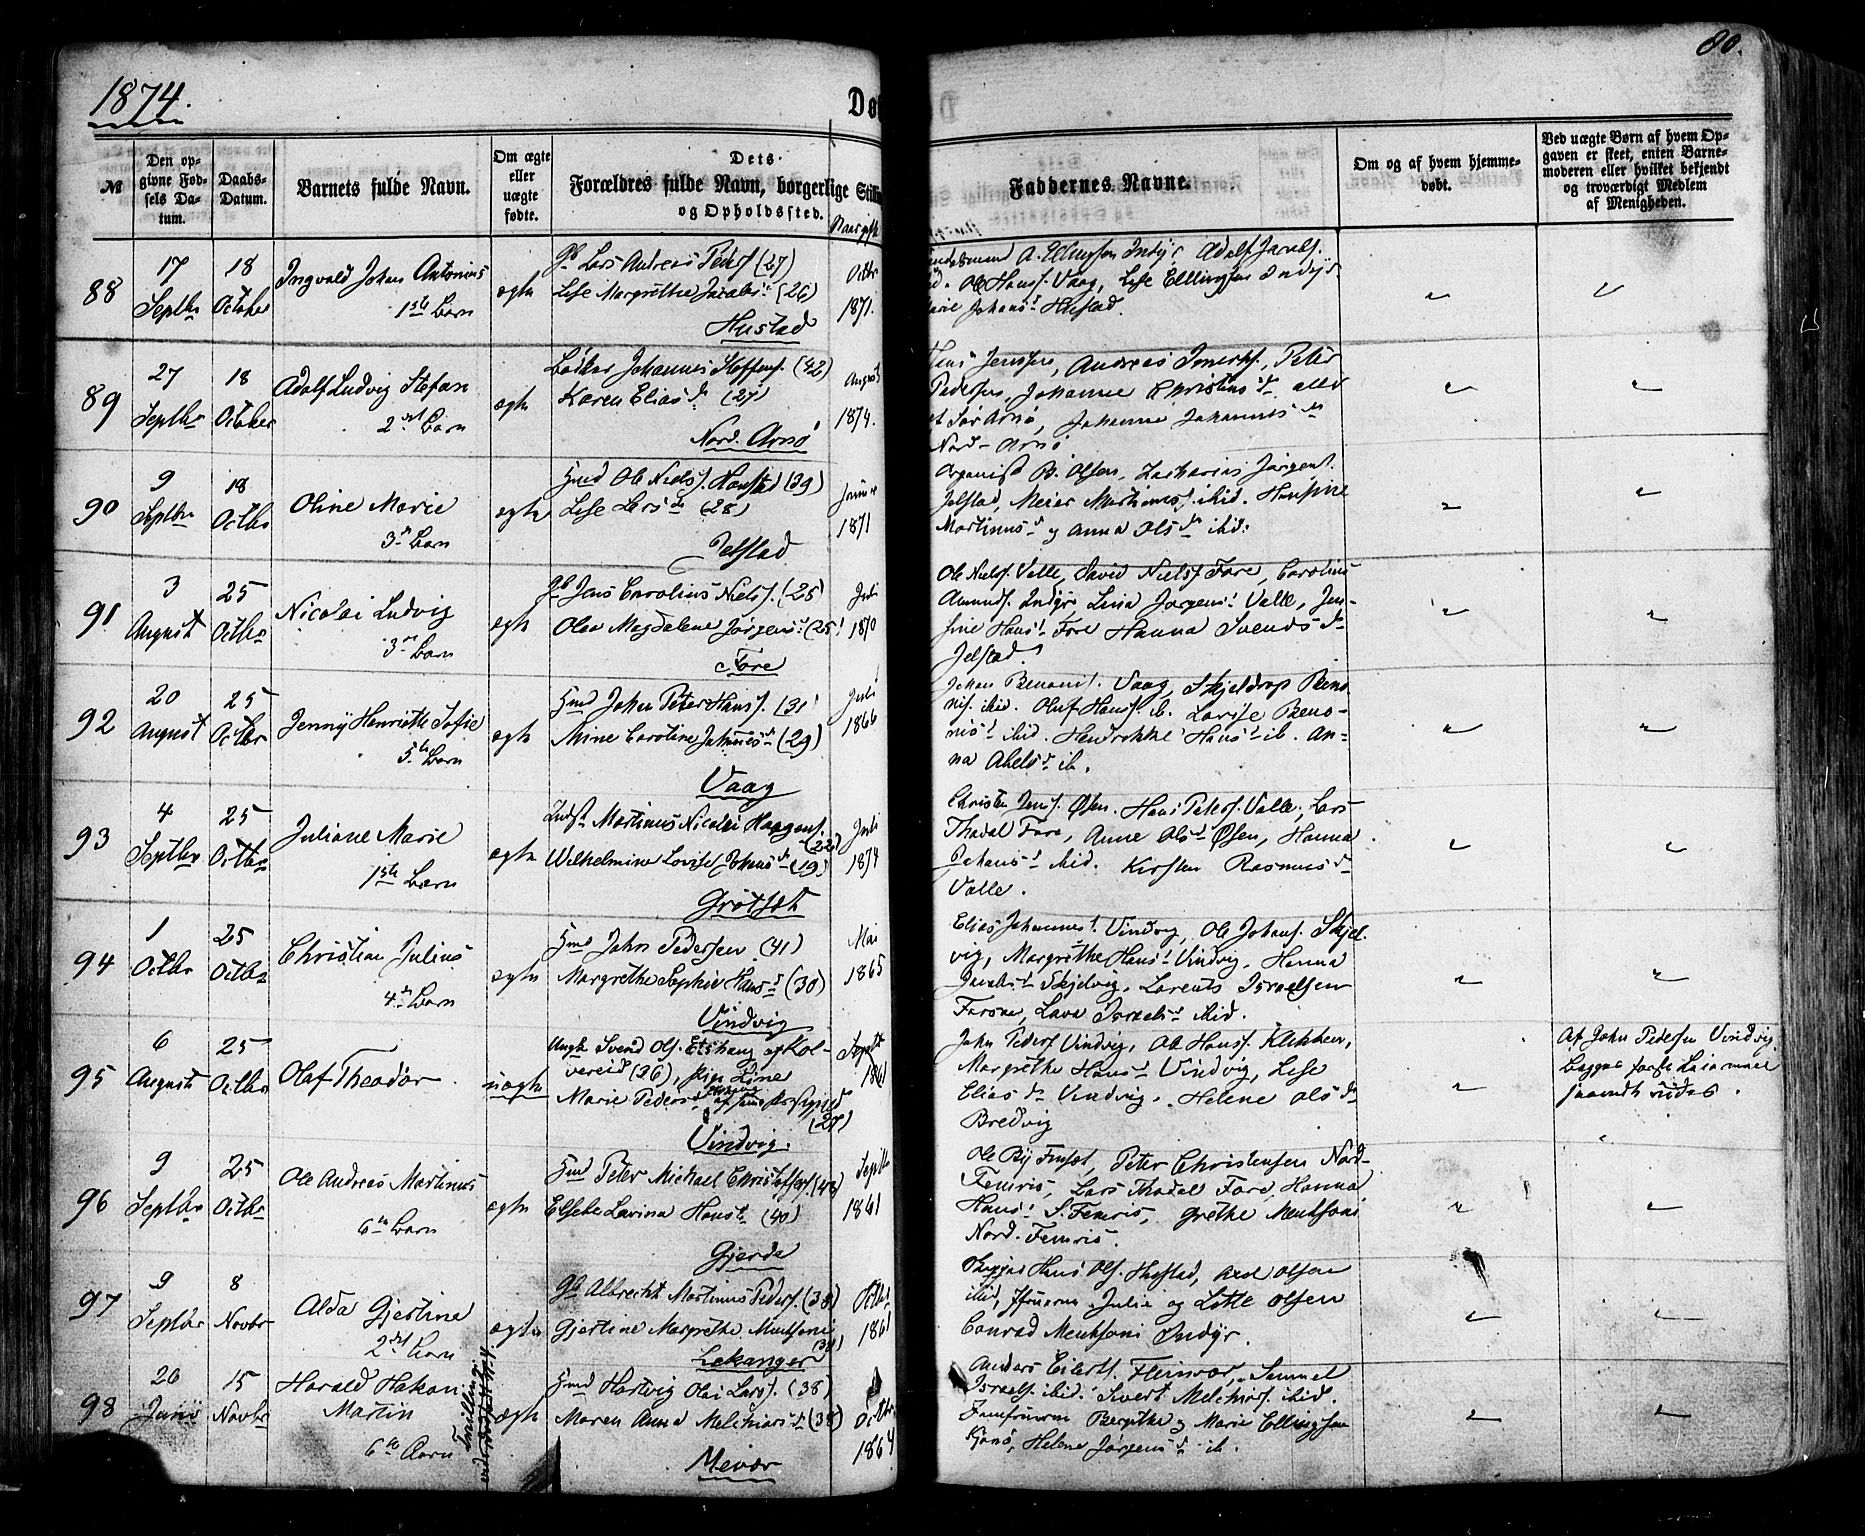 1874.
80.
Dø
№
Den op-
givne Fød-
sels Da-
tum.
Daabs-
Datum.
Barnets fulde Navn.
Om ægte
eller
uægte
fødte.
Dets
Forældres fulde Navn, borgerlige Still
og Opholdssted.
Faddernes Navne.
Om og af hvem hjemme-
døbt.
Ved uægte Børn af hvem Op-
gaven er skeet, enten Barne-
moderen eller hvilket bekjendt
og troværdigt Medlem
af Menigheden.
88
17
Septbr
18
October
Ingvald Johan Antonius
1ste Barn
ægte
Gb Lars Andreas Peders. (27)
Lise Margrethe Jacobsd. (26)
Hustad
Octbr
1871.
A. Ellingsen Indyr Adolf
Ole Hanss. Vaag, Lise Ellingsen Indyr
Johansd. Hustad.
89
27
Septbr
18
October
Adolf Ludvig Stefan
2det Barn
ægte
Bødker Johannes Steffens. (42)
Karen Eliasdr (27)
Nord. Arnø
August
1874.
Jenssen, Andreas Peter
Pedersen, Johanne Christinsdr alle
Sør Arnø, Johanna Johannesdr
Nord-Arnø
90
9
Septbr
18
Octbr
Oline Marie
3die Barn
ægte
Gmd Ole Niels. (39)
Lise Larsdr (28)
Jelstad
1871
Organist B. Olsen, Zacharias Jørgens.
Jelstad, Meier Martinuss. ibid. Hansine
Martinusd. og Anna Olsdr ibid.
91
3
August
25
Octbr
Nicolai Ludvig
3die Barn
ægte
Gb Jens Carolius Niels. (25)
Olava Magdalene Jørgensd. (25)
Fore
Juli
1870
Ole Niels. Valle, David Niels. Fore, Carolius
Amunds. Indyr, Lina Jørgensd. Valle, Jen-
sine Hansd. Fore Hanna Svendsdr
Jelstad.
92
20
August
25
Octbr
Jenny Henriette Sofie
5te Barn
ægte
Gmd Johan Peter Hanss. (31)
Mine Caroline Johnsesdr (29)
Vaag
Juli
1866
Johan Benonis. Vaag, Skjeldrop Beno-
nis. ibid. Oluf Hanss. ib. Lovise Beno-
nisd. ibid. Hendrikke Hansd. ib. An-
na Abelsd. ib.
93
4
Septbr
25
Octbr
Juliane Marie
1ste Barn
ægte
Martinus Nicolai Haagens.
(22)
Wilhelmine Lovise Johnsdr (19)
Grøtset
Juli
1874
Christen Jens. Øsen. Hans Peters. Valle, Lars
Thodal Fore, Anne Olsd. Øsen, Hanna
Johansd. ibid. Kirsten Rasmusd.
Valle.
94
1
Octbr
25
Octbr
Christian Julius
4de Barn
ægte
Gmd John Pedersen (41)
Margrethe Sophie Hansd. (30)
Vindvig
Mai
1865
Elias Johannes. Vindvig, Ole Johans. Skjel-
vig, Margrethe Hansd. Vindvig. Hanna
Jacobsd. Skjelvig. Lorents Israelsen
Lava Israelsd. ibid.
95
6
August
25
Octbr
Olaf Theodor.
uægte
Ungk Svend Ols. Etshaug af Kol-
vereid (26), Pige Line
Marie Pedersd.
(27)
Vindvig.
1861
John Peders. Vindvig, Ole Hanss. Klekken,
Margrethe Hansd. Vindvig, Lise
Eliasdr Vindvig. Helene Olsdr
Bredvig
Af John Pedersen Vindvig
begges første Leiermaal
saavidt vides.
96
9
Septbr
25
Octbr
Ole Andreas Martinus
6te Barn
ægte
Gmd Peter Michael Christoffers. (42)
Elsebe Lavina Hansd. (40)
Gjerde
Septbr
1861
Ole By Finset, Peter Christensen Nord-
Femris, Lars Thodal Fore, Hanna
Hansd. S. Femris, Grethe Mentsoni
Nord. Femris.
97
9
Septbr
8
Novbr
Alda Gjertine
2det Barn
ægte
Gb Albrecht Martinus Peders. (38)
Gjertine Margrethe Mentsoni
Lekanger
1861
Hans Ols. Hustad, Axel Olsen
ibid, Julie og Lotte Olsen
Conrad Mentsoni Indyr.
98
20
Juni
15
Novbr
Harald Hakon
Martin
6te Barn
Tvilling
ægte
Gmd Hartvig Olai Lars. (38)
Maren Anna Melchiorsdr (38)
Mevær
Octbr
1864
Anders Eilerts. Fleinvær, Samuel
Israels. ibid. Sivert Melchiors. ibid.
Jomfruerne Bergitte og Marie Ellingsen
Kjønø, Helene Jørgensdr ib.